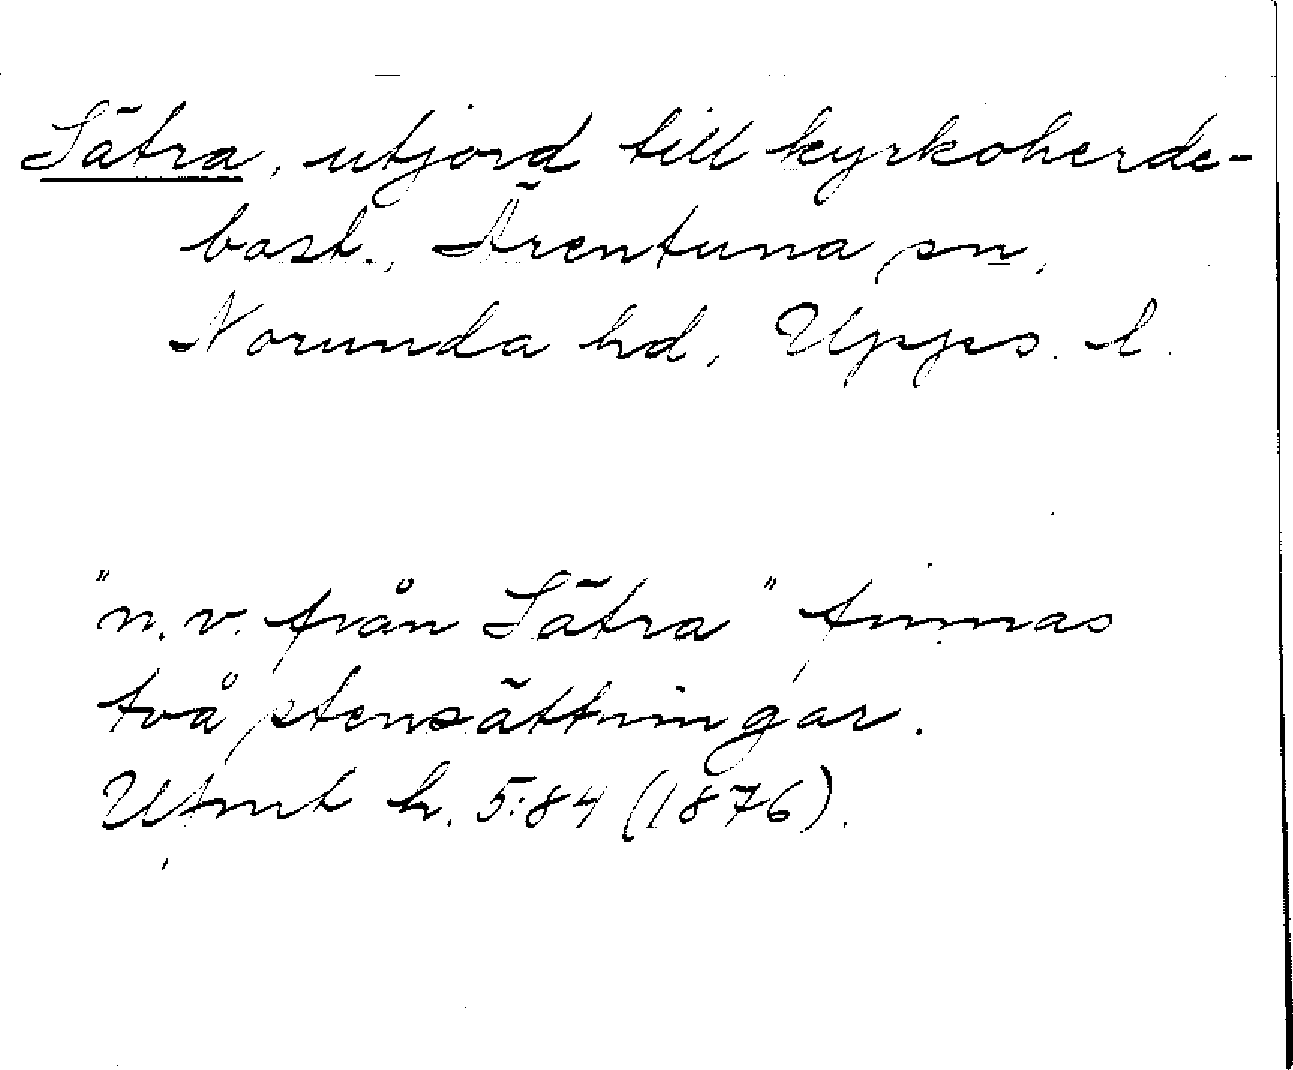 Sätra, utjord till kyrkoherde-
bost., Ärentuna sn,
Norunda hd, Upps. l.
"n.v. från Sätra" finnas
två stensättningar.
Ufmt h. 5:84 (1876).